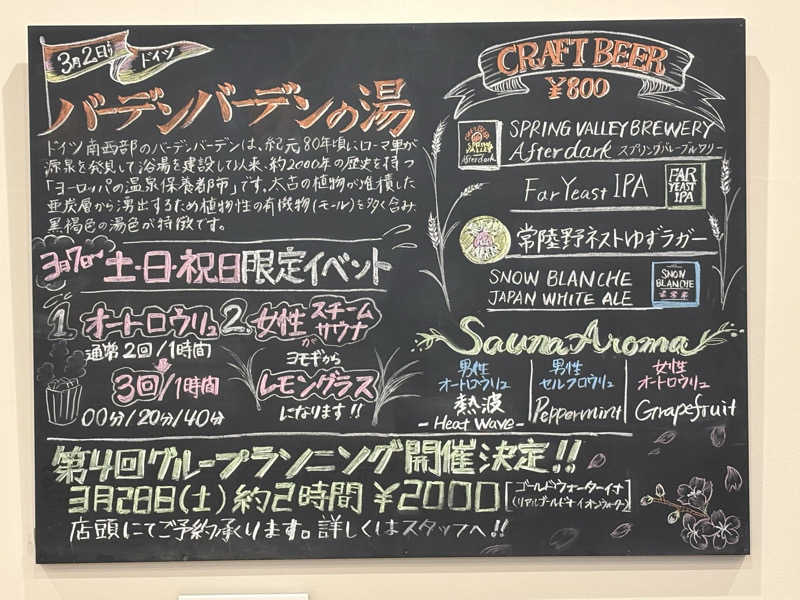 3月2日(月) ドイツ
バーデンバーデンの湯
ドイツ南西部のバーデンバーデンは、紀元80年頃にローマ軍が
源泉を発見して浴湯を建設して以来、約2000年の歴史を持つ
「ヨーロッパの温泉保養都市」です。太古の植物が堆積した
亜炭層から湧出するため植物性の有機物(モール)を多く含み、
黒褐色の湯色が特徴です。
3月7日〜 土・日・祝日限定イベント
1. オートロウリュ
通常2回/1時間
3回/1時間
00分/20分/40分
2. 女性スチームサウナが
ヨモギから
レモングラス
になります!!
CRAFT BEER
¥800
SPRING VALLEY BREWERY
Afterdark スプリングバレーブルワリー
CRAFT BEER
SPRING VALLEY
Afterdark
Far Yeast IPA
FAR YEAST IPA
常陸野ネストゆずラガー
SNOW BLANCHE
JAPAN WHITE ALE
SNOW BLANCHE
Sauna Aroma
男性
オートロウリュ
熱波
- Heat Wave -
男性
セルフロウリュ
Peppermint
女性
オートロウリュ
Grapefruit
第4回グループランニング開催決定!!
3月28日(土) 約2時間 ¥2000
ゴールドウォーター付
(リアルゴールド+イオンウォーター)
店頭にてご予約承ります。詳しくはスタッフへ!!